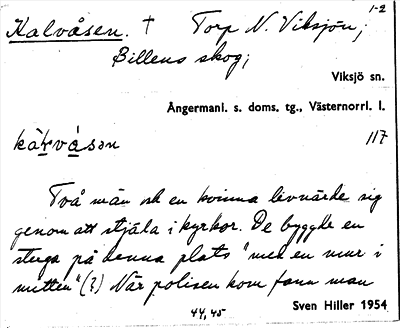 1-2
Kalvåsen. † Torp N. Viksjön,
Billens skog;
Viksjö sn.
Ångermanl. s. doms. tg., Västernorrl. l.
117
kàḷvå̀sən
Två män och en kvinna livnärde sig
genom att stjäla i kyrkor. De byggde en
stuga på denna plats "med en mur i
mitten" (?) När polisen kom fann man
44, 45
Sven Hiller 1954